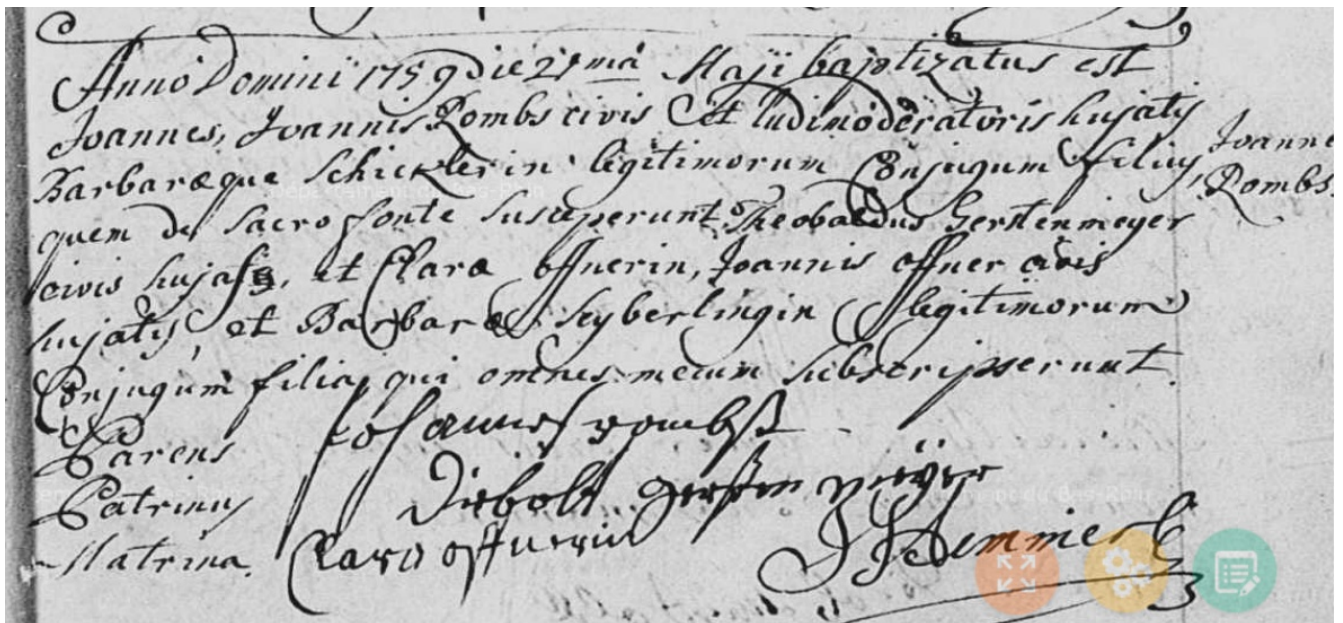 Anno Domini 1759 die 21ma Maji baptizatus est
Joannes, Joannis Rombs civis et ludimoderatoris hujatis
Barbaræque Schicklerin legitimorum Conjugum filius,
quem de Sacro fonte susceperunt Theobaldus Gerstenmeyer
civis hujatis, et Clara Offnerin, Joannis Offner civis
hujatis, et Barbaræ Seyberlingin legitimorum
Conjugum filia, qui omnes mecum subscripserunt.
Joanne
Rombs
Parens Johannes rombß
Patrinus Diebolt gersten meÿer
Matrina. Clara offnerin
Hemmerlé